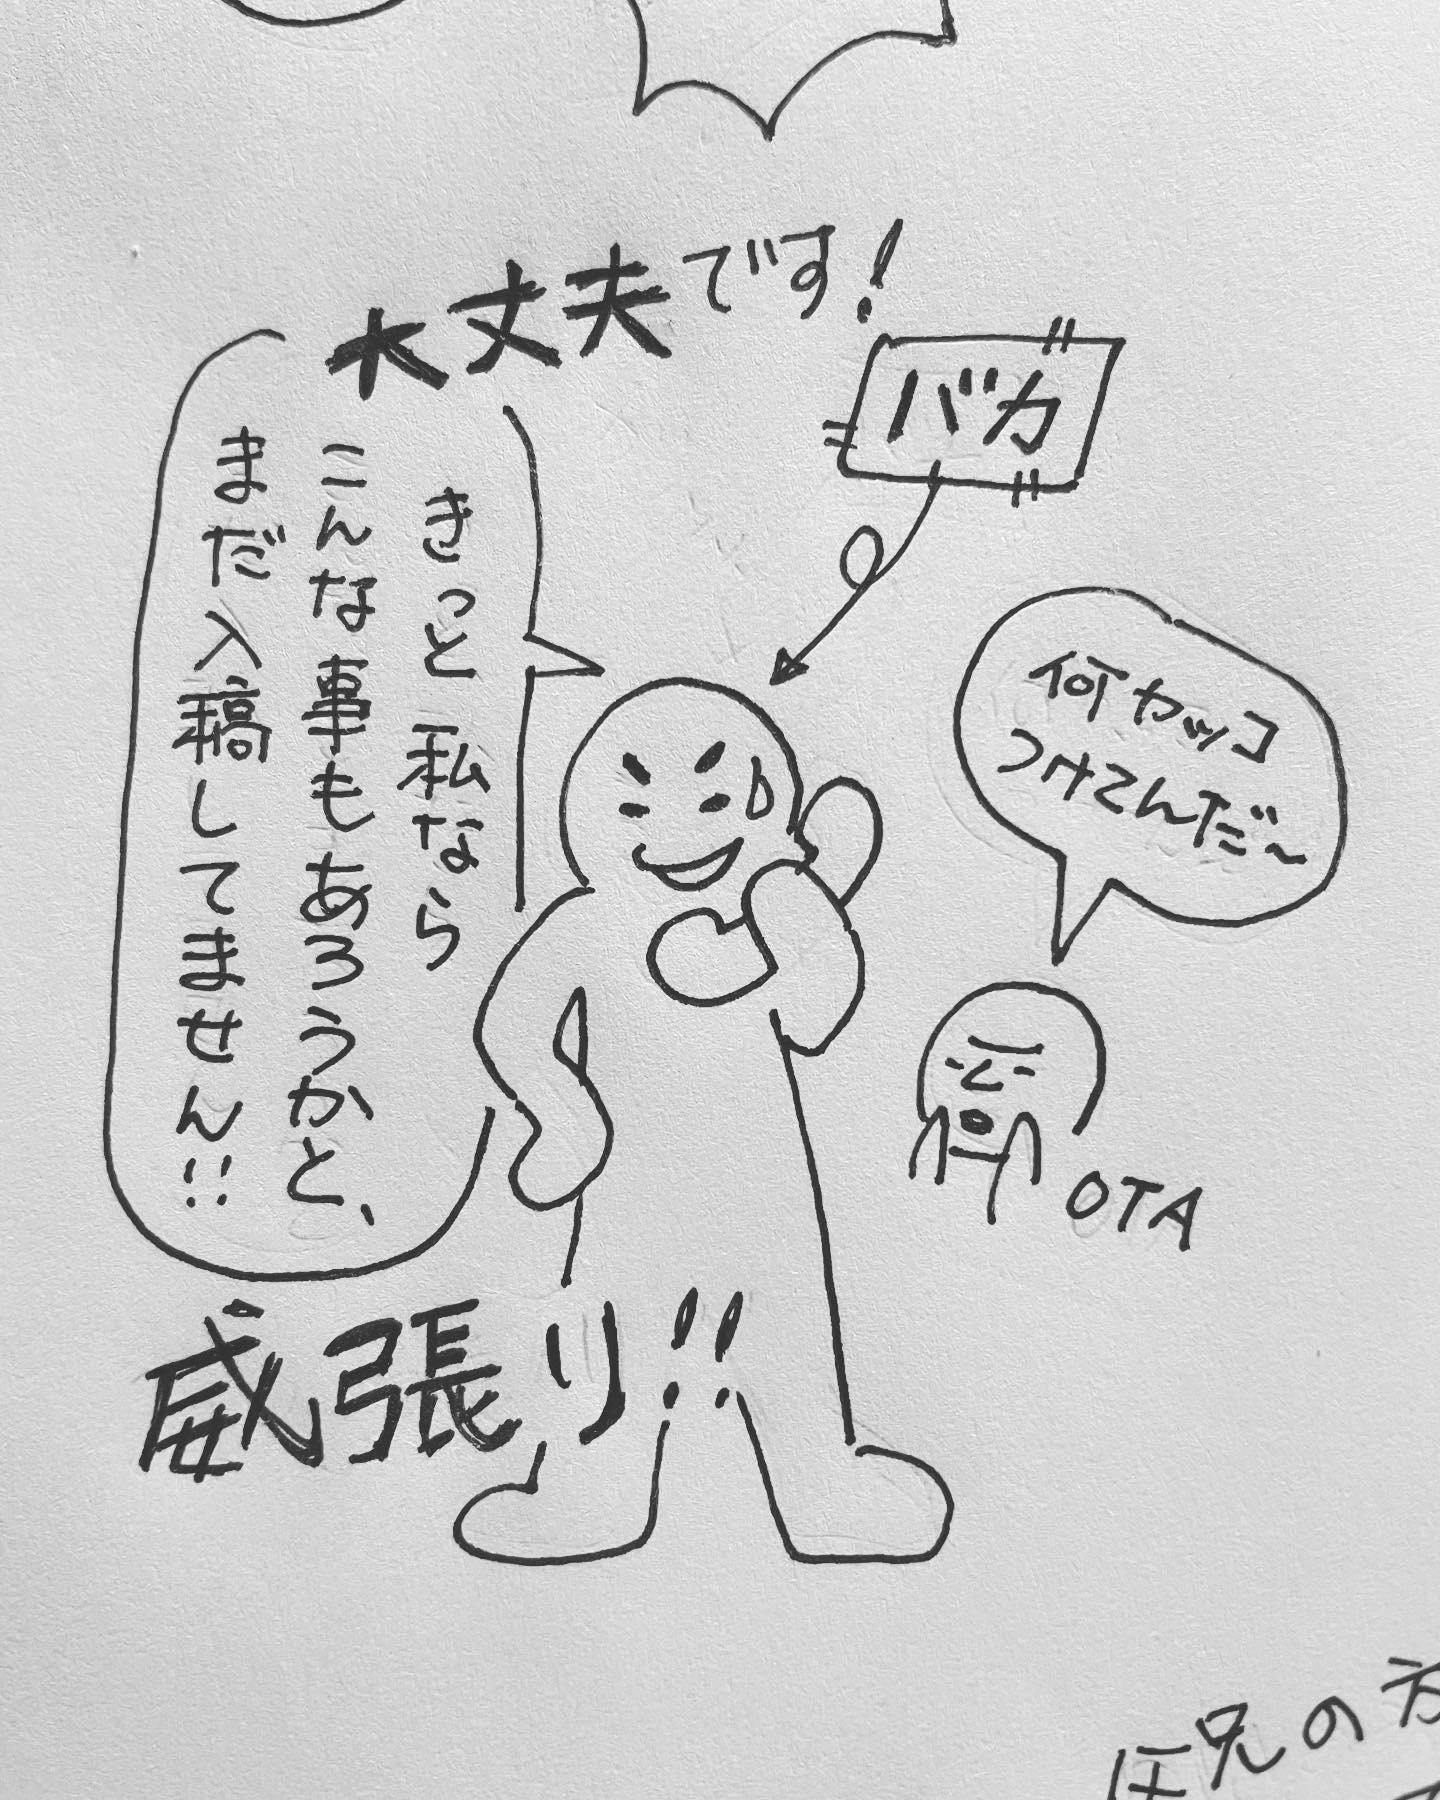 大丈夫です!
きっと私なら
こんな事もあろうかと、
まだ入稿してません!!
バカ
何カッコ
つけてんだ~
OTA
威張り!!
兄の方